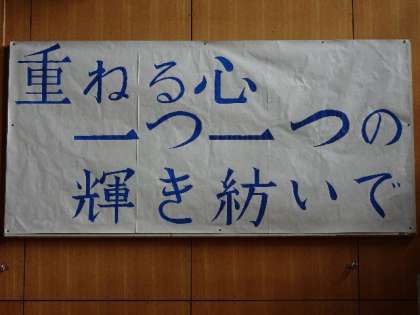 重ねる心
一つ一つの
輝き紡いで